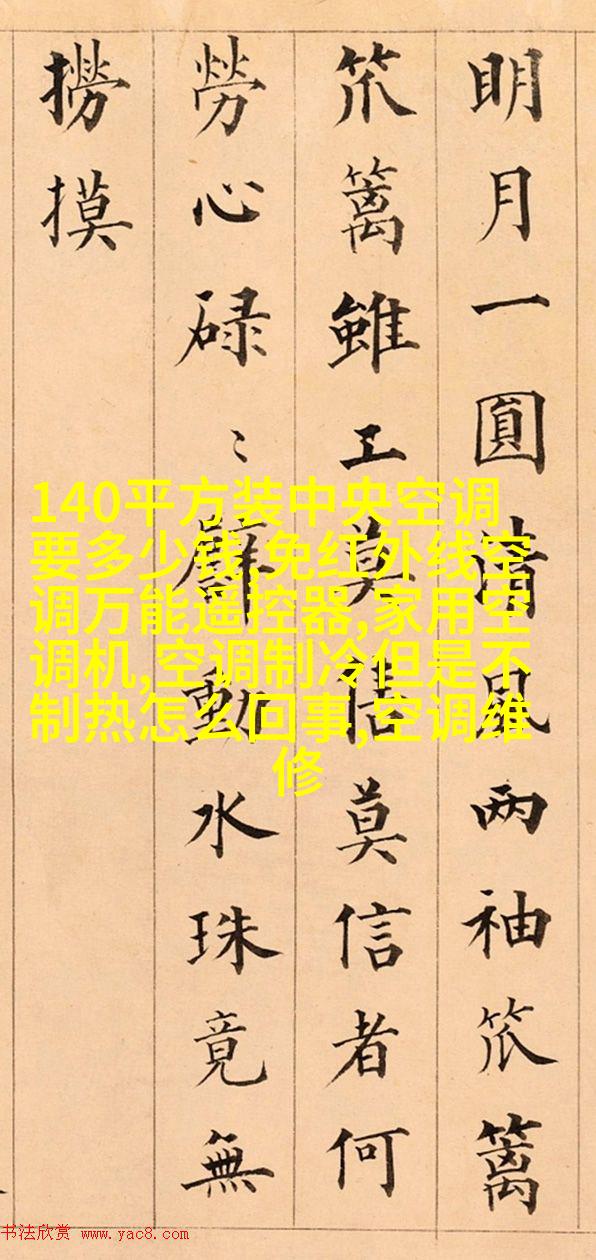 明月一圓清風两袖笊篱
笊篱雖工莫莫信者何
勞心碌〻動水珠竟無
撈摸
140平方装中央空调
要多少钱,免红外线空
调万能遥控器,家用空
调机,空调制冷但是不
制热怎么回事,空调维
修
书法欣赏 www.yac8.com